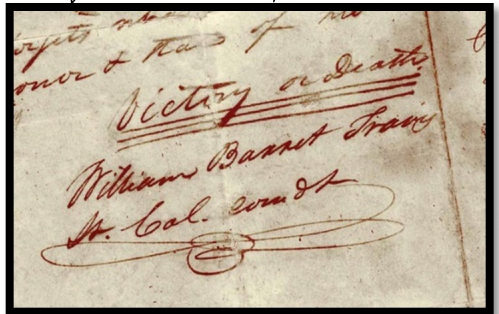 forgets what
onor & that of his
Victory or Death
William Barret Travis
Lt. Col. comdt